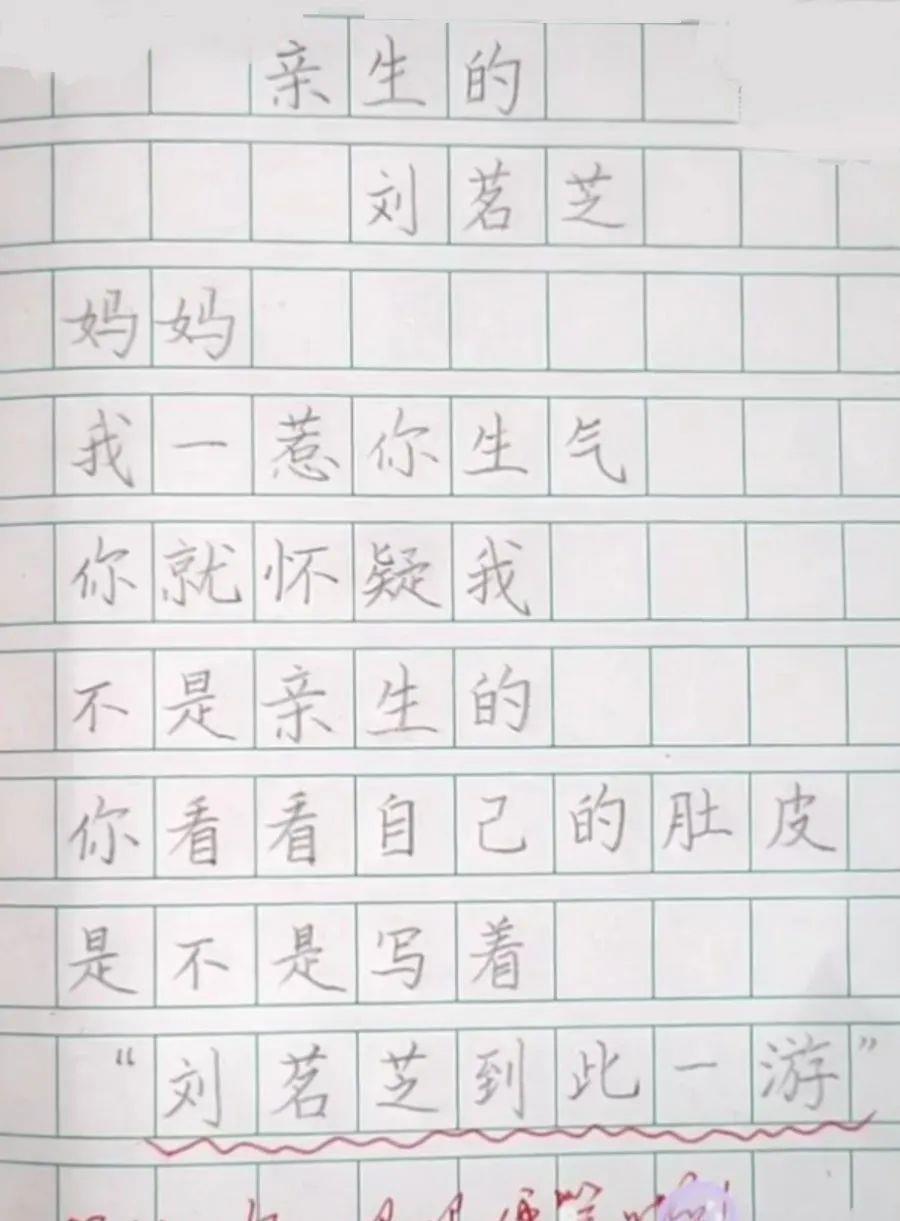 亲生的
刘茗芝
妈妈
我一惹你生气
你就怀疑我
不是亲生的
你看看自己的肚皮
是不是写着
“刘茗芝到此一游”